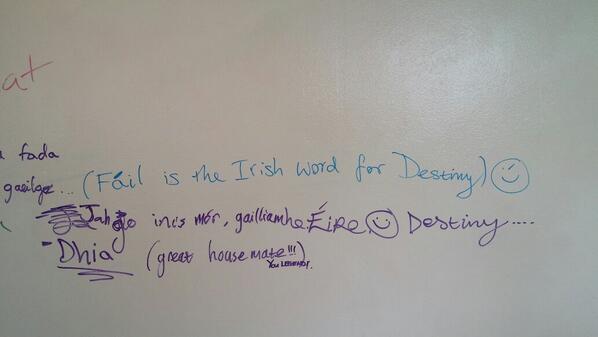 at
fada
gaeilge... (Fáil is the Irish word for Destiny)
go inis mór, gailliamhe Éire Destiny....
-Dhia (great housemate!!!)
You LEGEND!